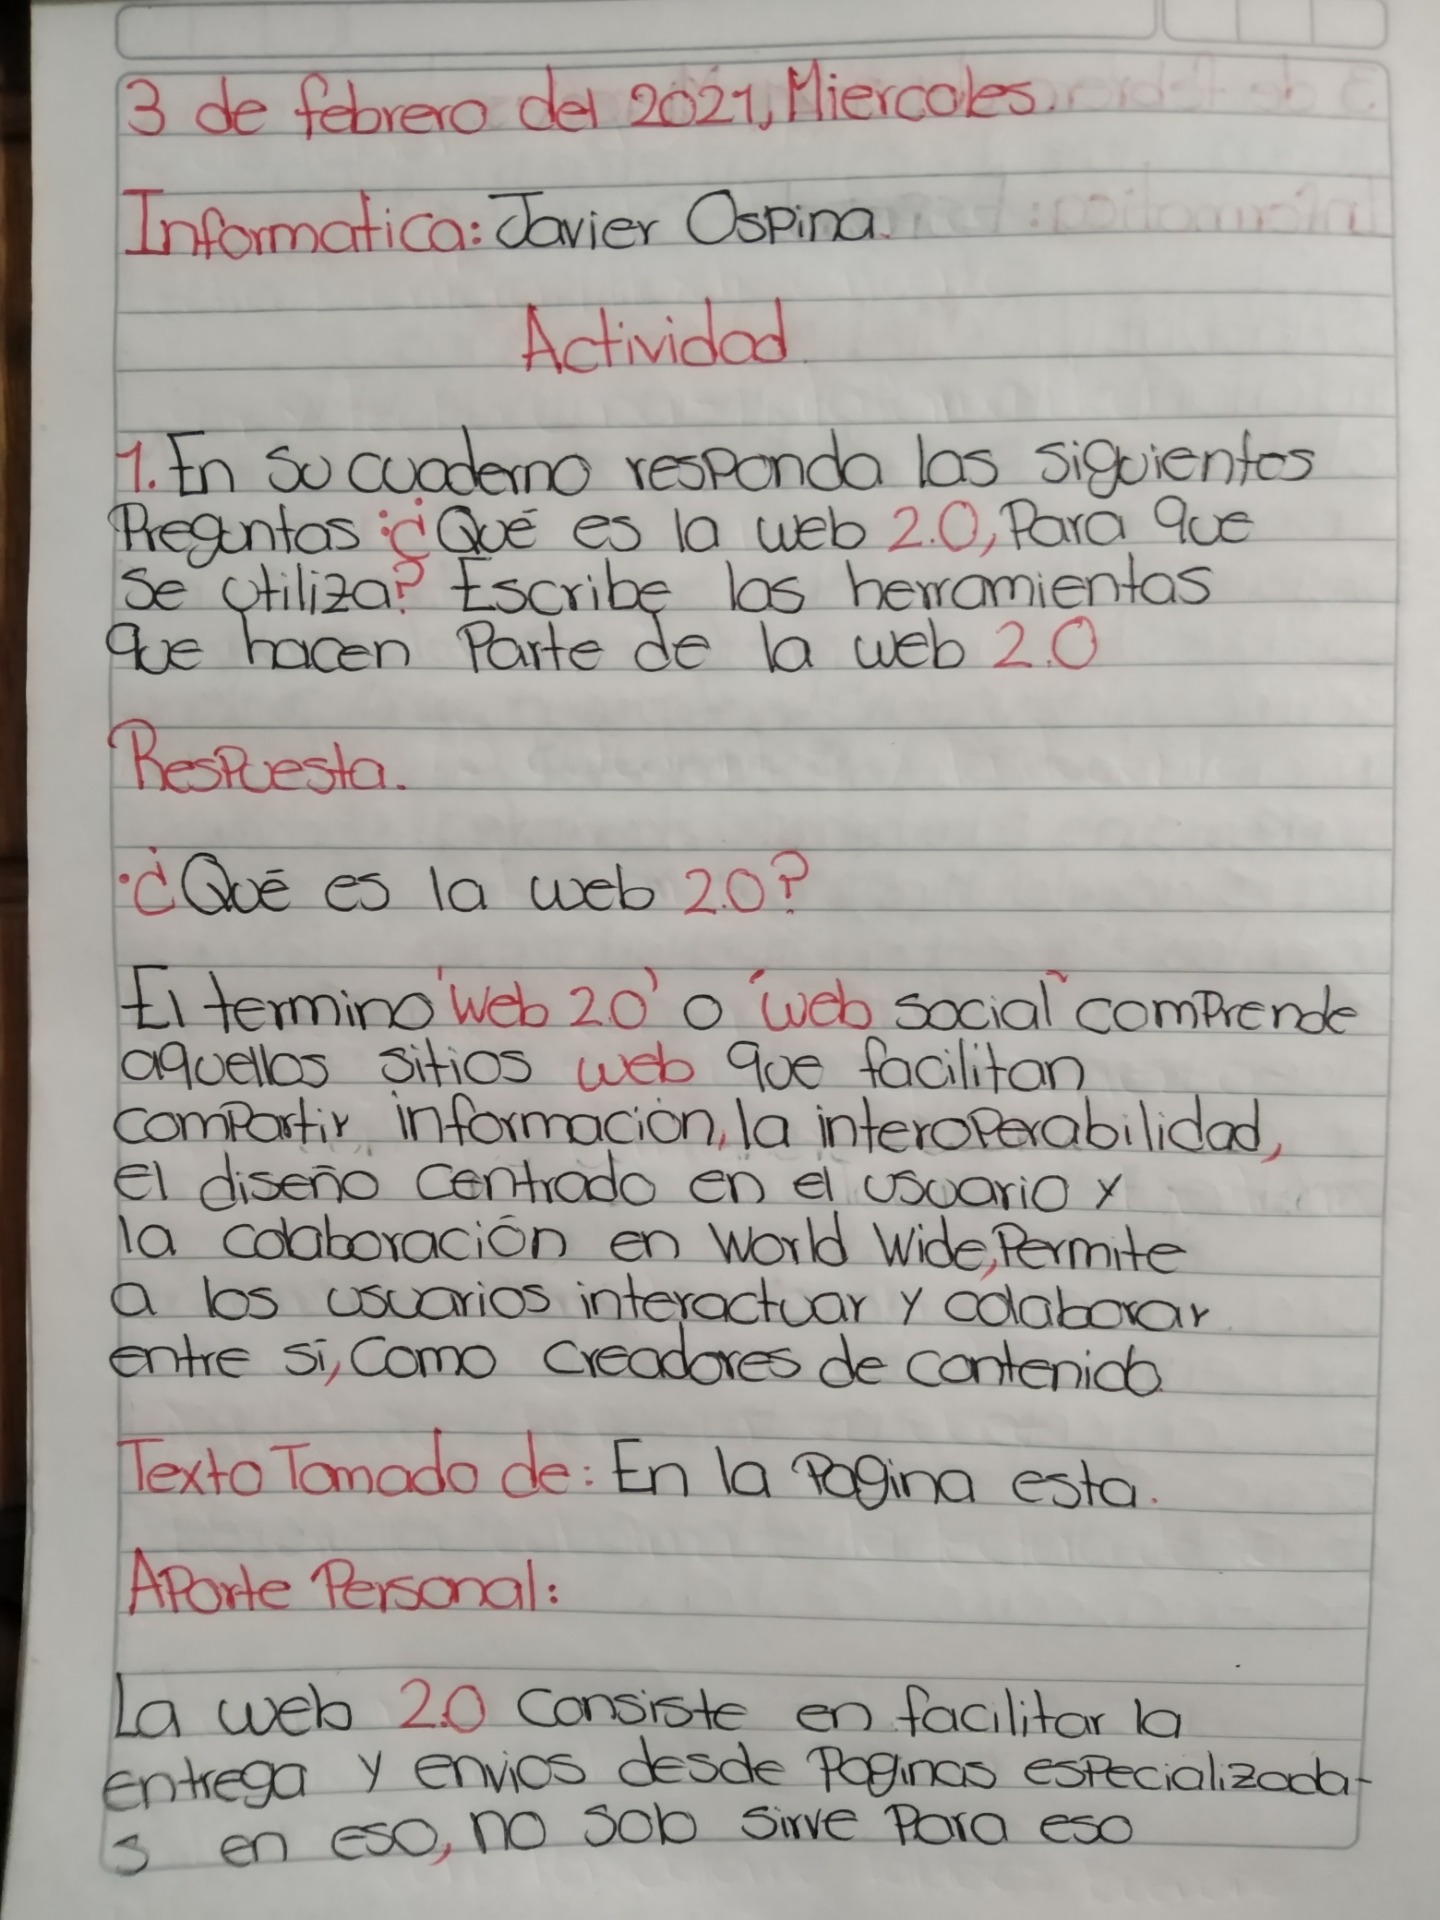 3 de febrero del 2021, Miercoles.
Informatica: Javier Ospina.
Actividad
1. En su cuaderno responda las siguientes
Preguntas :¿Qué es la web 2.0, Para que
se utiliza? Escribe las herramientas
que hacen Parte de la web 2.0
Respuesta.
·¿Qué es la web 2.0?
El termino 'Web 2.0' o "web social" comprende
aquellos sitios web que facilitan
compartir información, la interoperabilidad,
el diseño centrado en el usuario y
la colaboración en World Wide, Permite
a los usuarios interactuar y colaborar
entre sí, Como creadores de contenido
Texto Tomado de: En la Pagina esta.
Aporte Personal:
La web 2.0 Consiste en facilitar la
entrega y envios desde Paginas especializada-
s en eso, no solo sirve Para eso